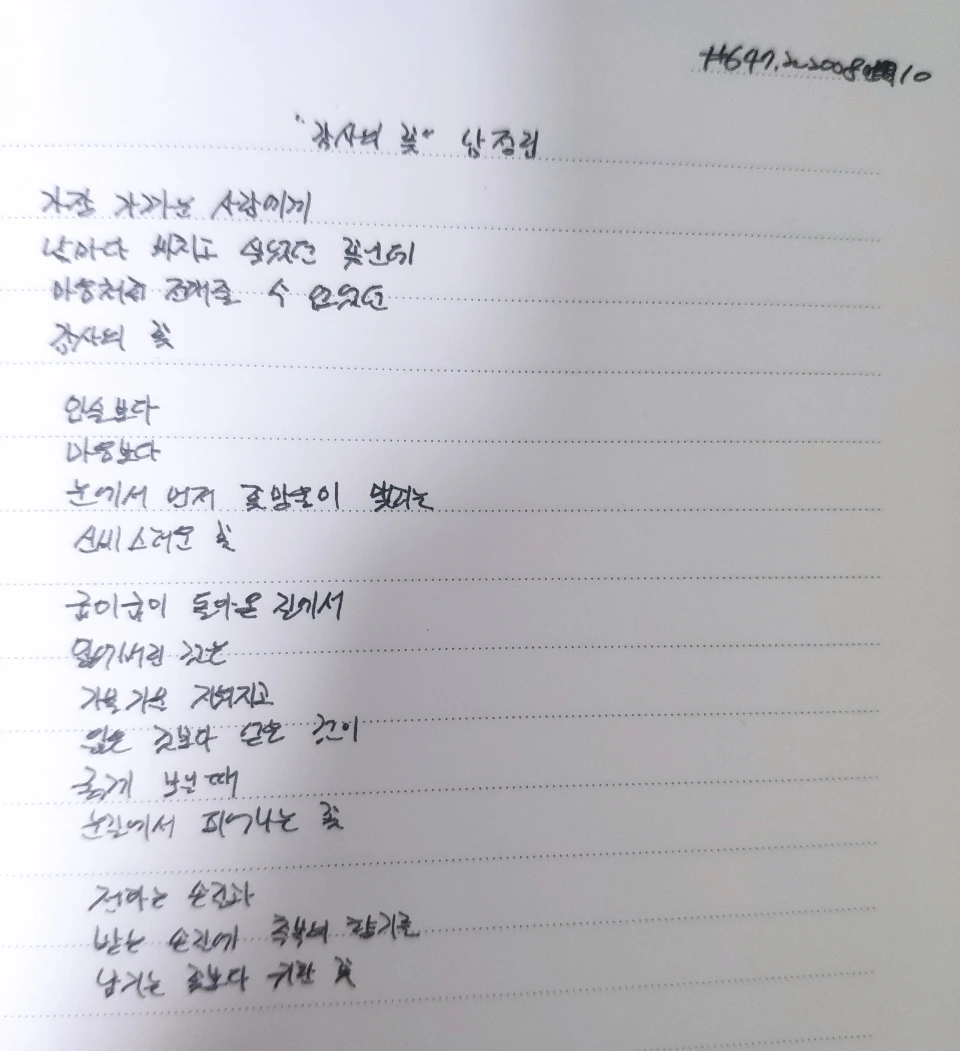 #647. 20200810
"감사의 꽃" 남정림
가장 가까운 사람에게
날마다 쥐어주고 싶었던 꽃인데
마음처럼 전해줄 수 없었던
감사의 꽃
입술보다
마음보다
눈에서 먼저 꽃망울이 맺히는
신비스러운 꽃
굽이굽이 돌아온 길에서
잃어버린 것은
가물가물 지워지고
잃은 것보다 얻은 것이
굵게 보일 때
눈길에서 피어나는 꽃
전하는 손길과
받는 손길에 축복의 향기를
남기는 꽃보다 귀한 꽃